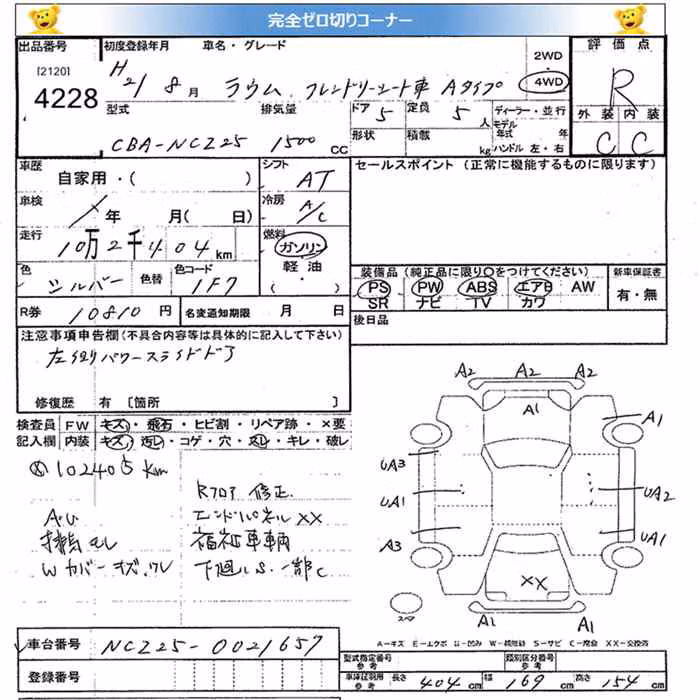 完全ゼロ切りコーナー
出品番号 初度登録年月 車名・グレード 評価点
[2120] 4228
H 21 8月 ラウム フレンドリーシート車 Aタイプ 2WD 4WD R
型式 排気量 ドア 5 定員 5 人 ディーラー・並行 外装 内装
CBA-NCZ25 1500 CC 形状 積載 kg モデル年式 年 ハンドル 左・右 C C
車歴 自家用・( ) シフト AT セールスポイント(正常に機能するものに限ります)
車検 / 年 月( 日) 冷房 A/C
走行 10万2千404km 燃料 ガソリン
軽油
色 シルバー 色替 色コード 1F7 ( )
装備品(純正品に限り○をつけてください) 新車保証書
PS PW ABS エアB AW 有・無
SR ナビ TV カワ
R券 10810円 名変通知期限 月 日 後日品
注意事項申告欄(不具合内容等は具体的に記入して下さい)
左側パワースライドドア
修復歴 有 [箇所 ]
検査員 FW キズ・飛石・ヒビ割・リペア跡・×要
記入欄 内装 キズ・汚レ・コゲ・穴・スレ・キレ・破レ
102405km
Rフロア 修正
AU エンドパネル XX
福祉車輌
Wカバーキズ、ワレ 下廻りS・一部C
A2 A2 A2
A1 A1
UA3
UA1 UA2
A3 UA1
XX
A1 A1
スマ
A-キズ E-エクボ U-凹み W-補修跡 S-サビ C-腐食 XX-交換済
車台番号 NCZ25-0021657
登録番号
型式指定番号 参考 類別区分番号 参考
車庫証明用 参考 長さ 404cm 幅 169cm 高さ 154cm